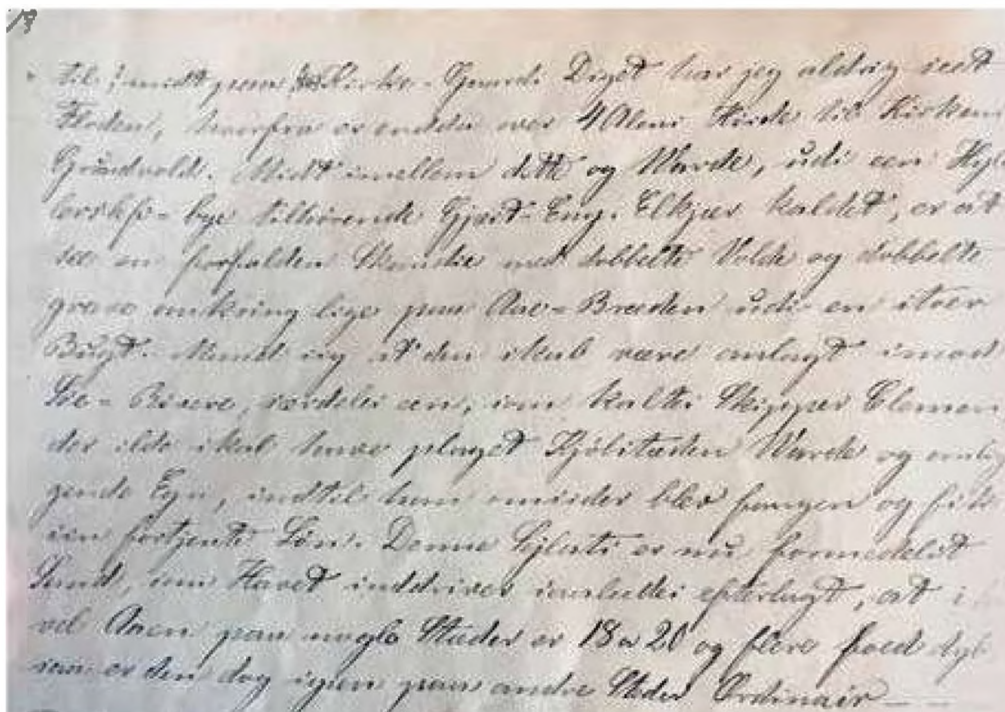 til; midt paa Kirke-Gaards Diget har jeg aldrig seet
Floden, hvorfra er endda over 4 Alens Höide til Kirkens
Grundvold. Midt imellem dette og Warde, udi een
bye tilhörende Eng, Elkjær kaldet, er at
see en forfalden Skandse med dobbelte Volde og dobbelte
grave omkring lige paa Aae-Bredden udi en stor
Bugt. Mand sig at den skal være anlagt imod
Söe-Rövere, særdeles een, som kaltes Skipper Clemen
der ilde skal have plaget Kjöbstæden Warde og omlig
gende Egn, indtil han omsider blev fangen og fik
sin fortjente Lön. Denne Sejlads er nu formedelst
Sand, som Havet inddriver saaledes ödelagt, at i
vel Aaen paa nogle Stæder er 18 a 20 og flere foed dyb
saa er den dog igien paa andre Steder Ordinair - -